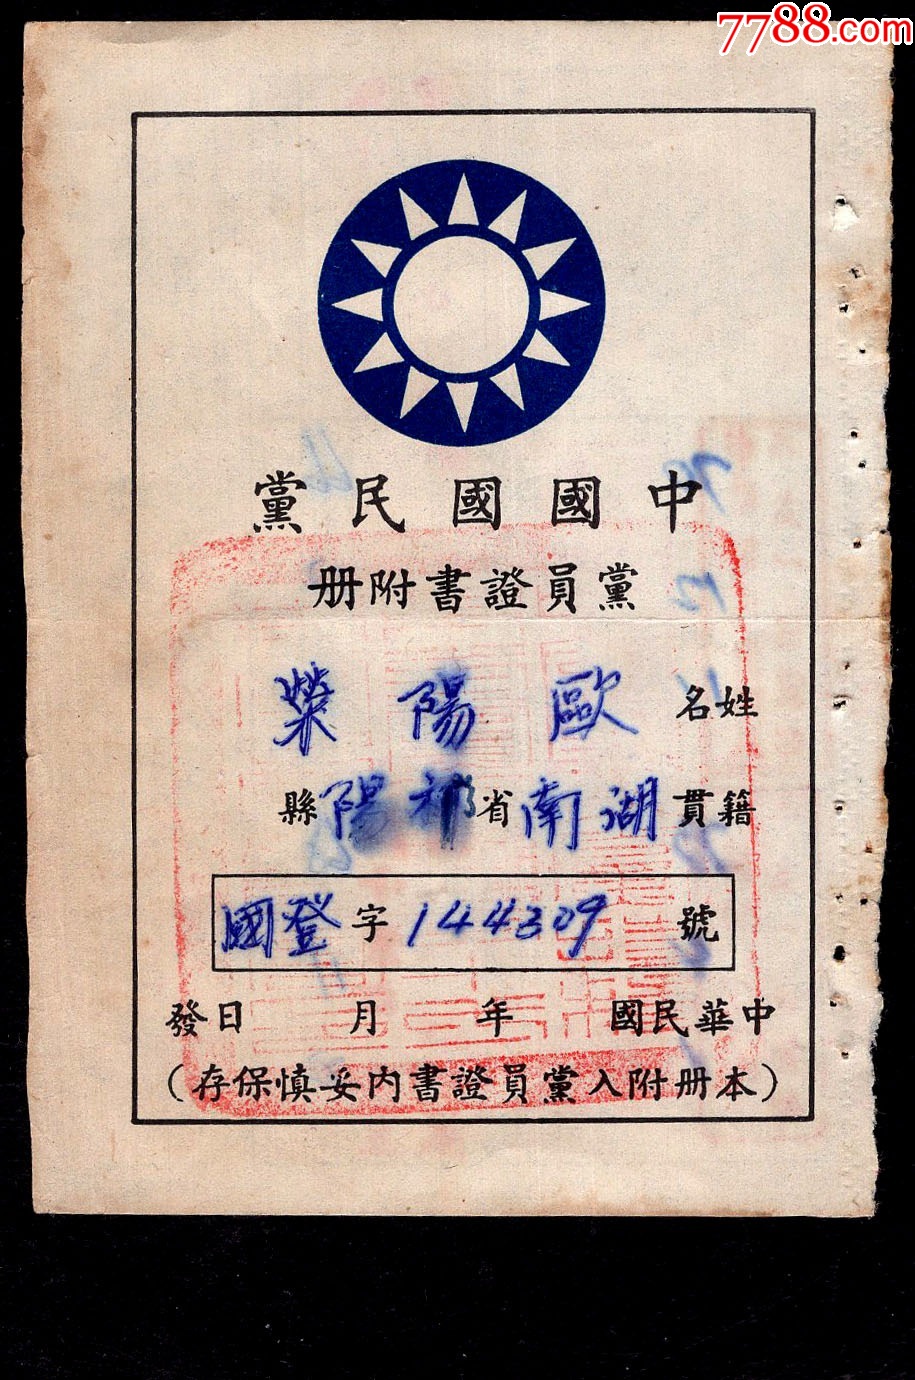 7788.com
中國國民黨
黨員證書附册
姓名 歐陽榮
籍貫 湖南省祁陽縣
國登字144309號
中華民國 年 月 日發
（本册附入黨員證書内妥慎保存）